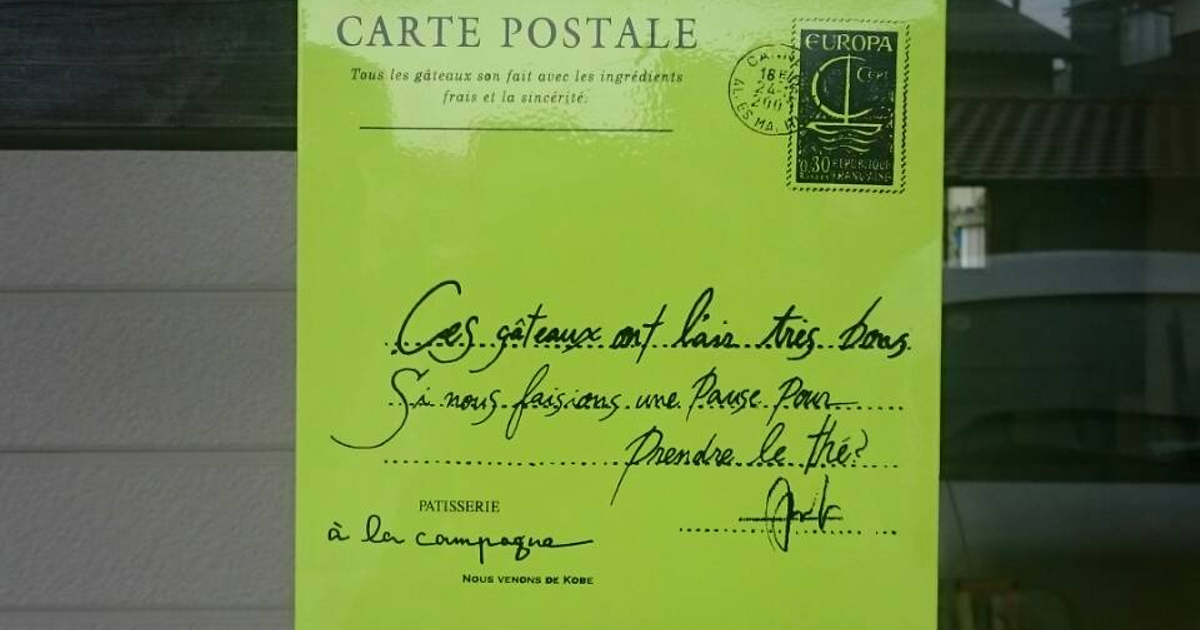 CARTE POSTALE
Tous les gâteaux son fait avec les ingrédients
frais et la sincérité.
EUROPA
CEPT
0,30 REPUBLIQUE
FRANÇAISE
18 H
Ces gâteaux ont l'air très bons.
Si nous faisions une Pause Pour
Prendre le thé?
PATISSERIE
à la campagne
NOUS VENONS DE KOBE